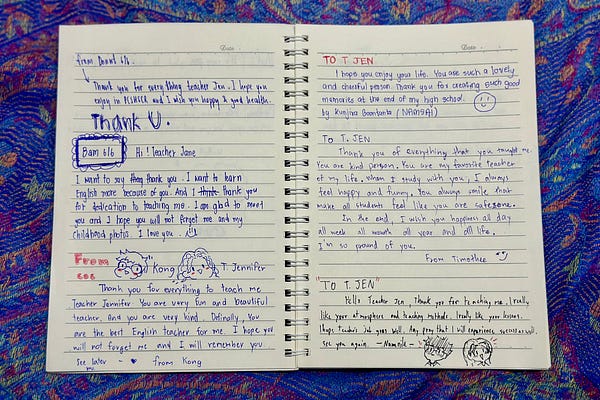 Date
from Donut 616.
Thank you for everything teacher Jen. I hope you
enjoy in and I wish you happy & good health.
Thank U.
Bam 616
Hi! Teacher Jane
I want to say thag thank you. I want to learn
English more because of you. And I think thank you
for dedication to teaching me. I am glad to meet
you and I hope you will not forget me and my
childhood photos. I love you.
From
Kong
T. Jennifer
Thank you for everything to teach me
Teacher Jennifer You are very fun and beautiful
teacher. And you are very kind. Definally, You
are the best English teacher for me. I hope you
will not forget me and I will remember you.
See later ~ ♥ from Kong
Date
TO T JEN
I hope you enjoy your life. You are such a lovely
and cheerful person. Thank you for creating such good
memories at the end of my high school.
by Kunjira Boontanta (NAMSAI)
TO T. JEN
Thank you of everything that you taught me.
You are kind person. You are my favorite teacher
of my life. When I study with you, I always
feel happy and funny. You always smile that
make all students feel like you are safezone.
In the end, I wish you happiness all day
all week all month all year and all life.
I'm so pround of you.
From Timothee
"TO T. JEN"
Hello Teacher Jen, Thank you for teaching me, I really
like your atmosphere and teaching methods. I really like your lessons.
I hope teacher's job goes well. Any pray that I will experience success as well.
see you again. - Namnile -